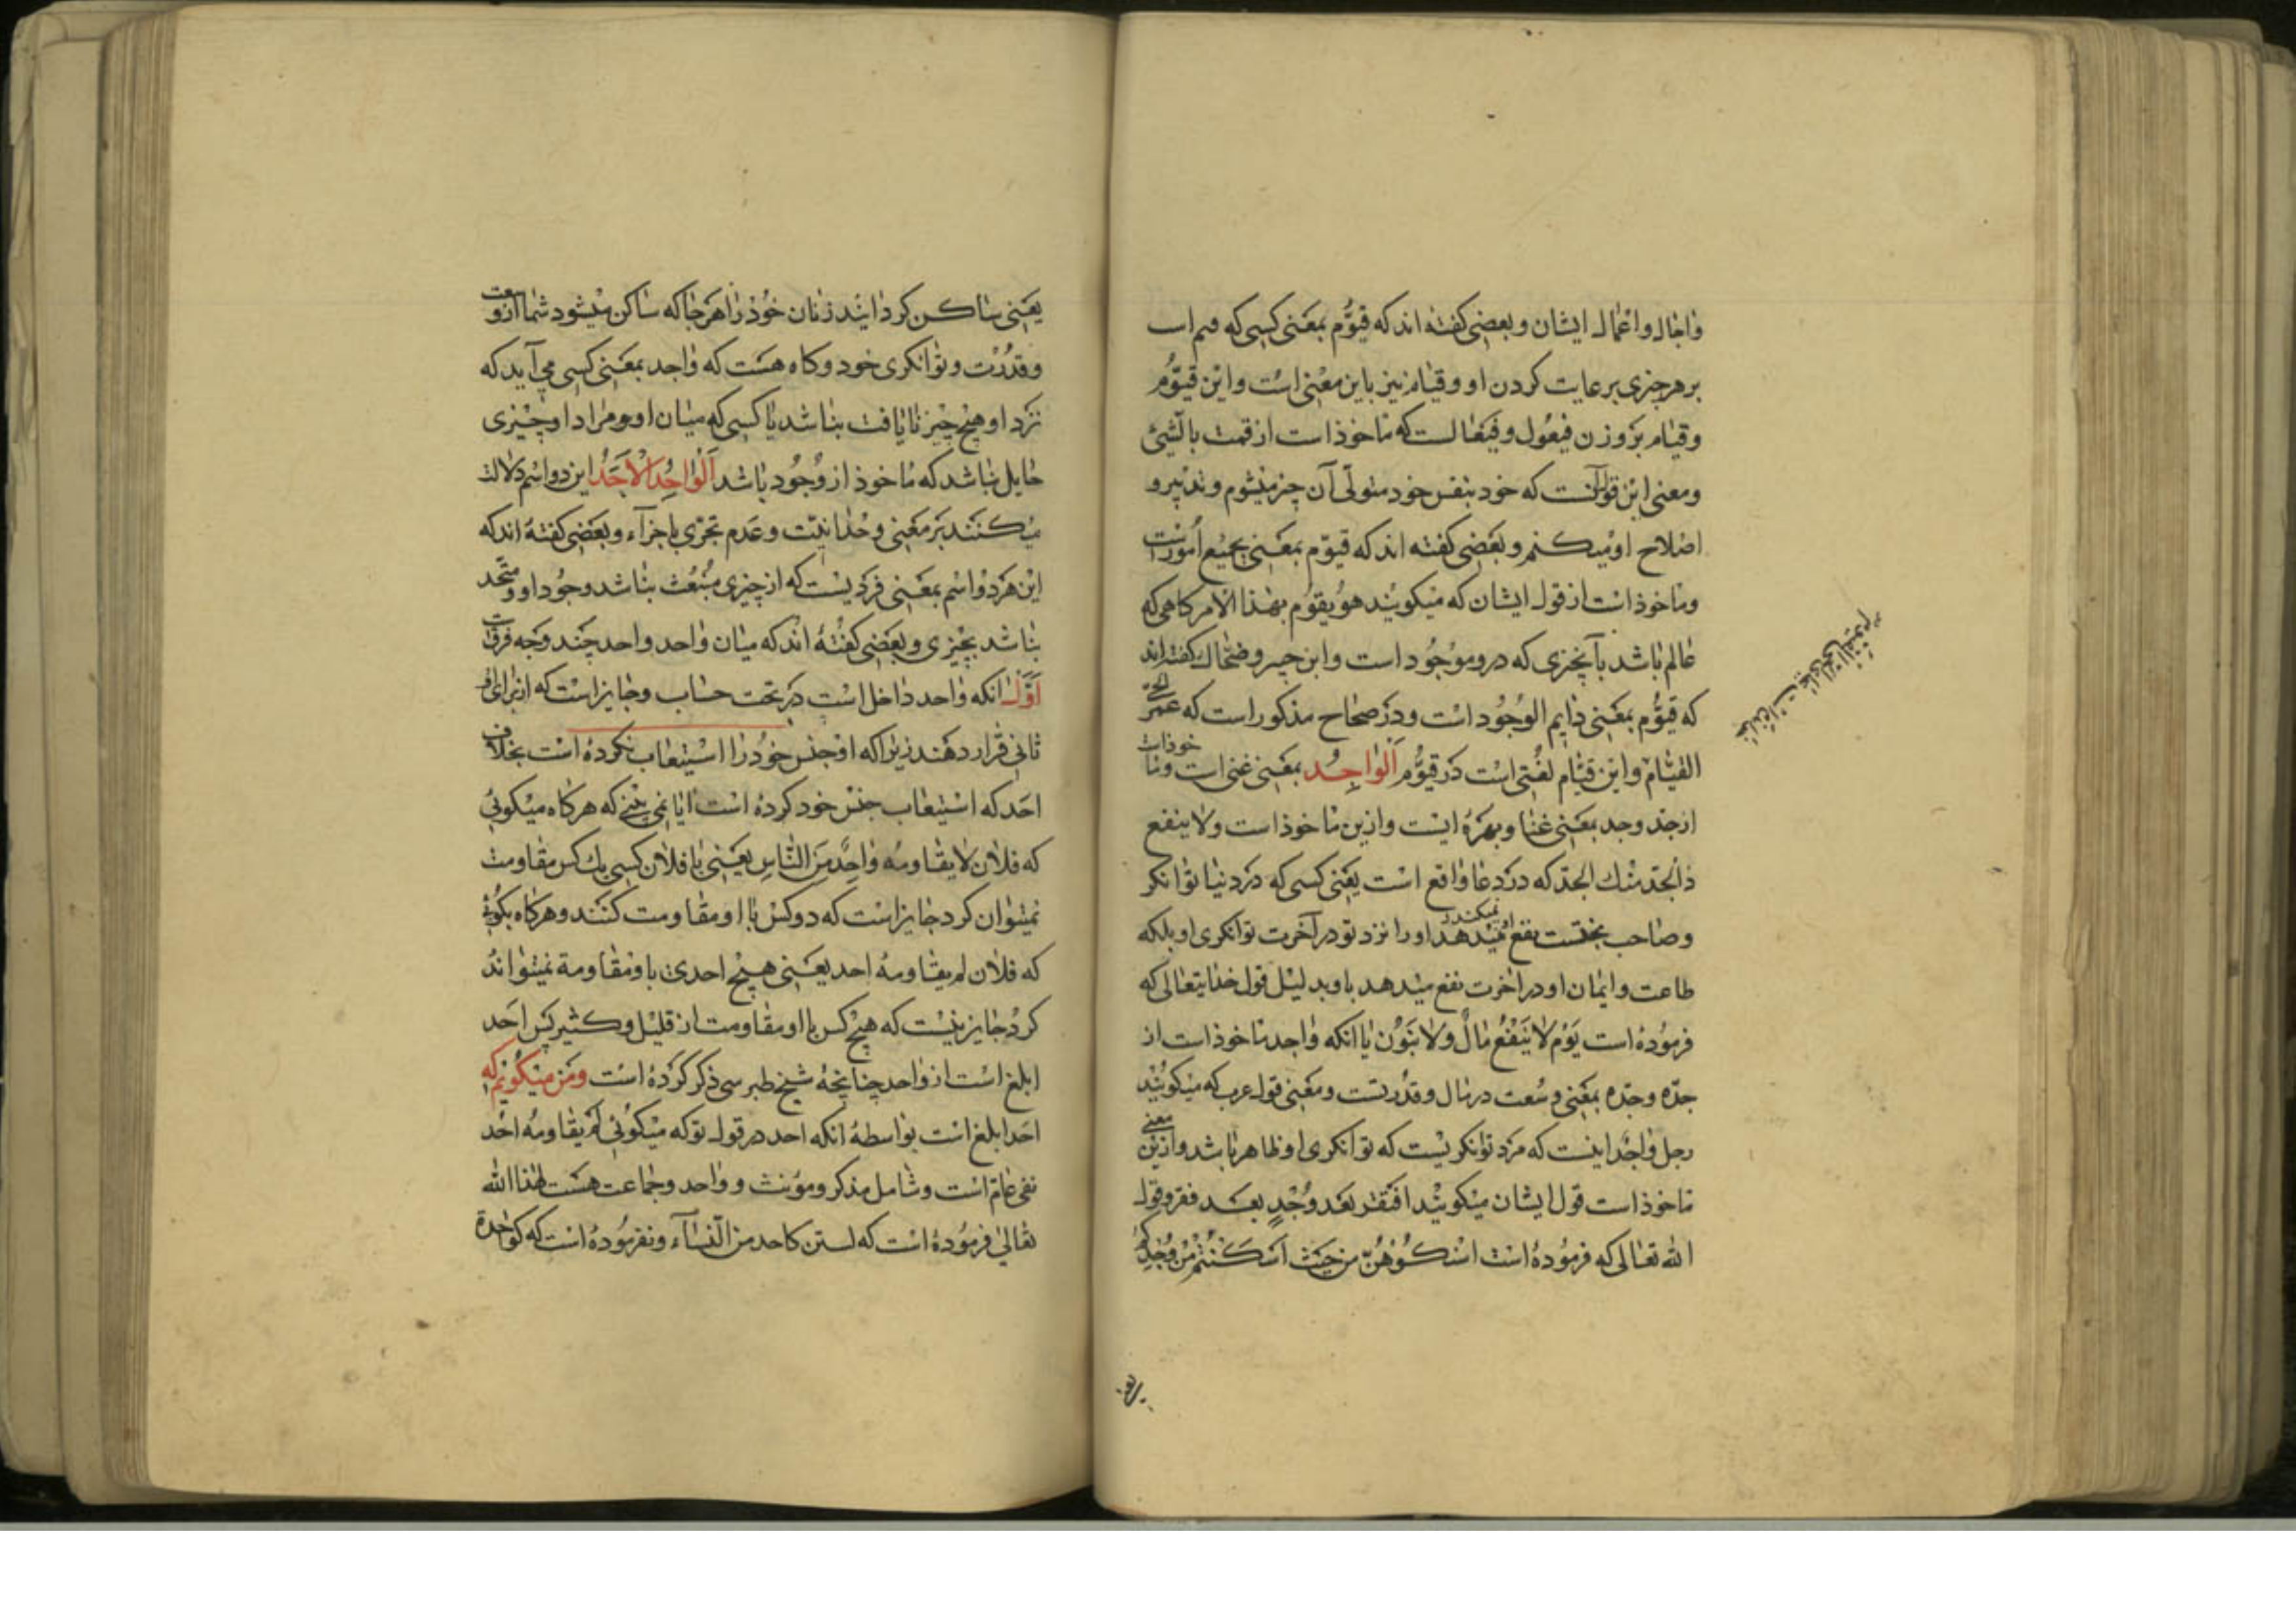 واجال واعمال ایشان و بعضی کفته اند که قیوم بمعنی کسی که قیم است
بر هر چیزی برعایت کردن او و قیام نیز باین معنی است و این قیوم
و قیام بر وزن فیعول و فیعالست که ماخوذ است از قمت بالشیئ
و معنی این قول آنست که خود بنفس خود متولی آن چیز میشوم و تدبیر و
اصلاح او میکنم و بعضی کفته اند که قیوم بمعنی بجمیع امورست
وماخوذ است از قول ایشان که میکویند هو یقوم بهذا الامر کاهی که
عالم باشد بآنچیزی که درو موجود است و ابن جبیر و ضحاک کفته اند
که قیوم بمعنی دایم الوجود است و در صحاح مذکور است که عمر الحی
القیام و این قیام لغتی است در قیوم الواجد بمعنی غنی است و ماخوذات
از جد وجد بمعنی غنا و بهره ایست و ازین ماخوذ است ولا ینفع
ذالجد منک الجد که در دعا واقع است یعنی کسی که در دنیا توانکر
وصاحب بختست نفع نمیکند او را نزد تو در آخرت توانکری او بلکه
طاعت وایمان او در اخرت نفع میدهد باو بدلیل قول خدایتعالی که
فرموده است یوم لا ینفع مال ولا بنون یا انکه واجد ماخوذ است از
جده وجده بمعنی وسعت در مال و قدرتست و معنی قول عرب که میکویند
رجل واجد اینست که مرد توانکریست که توانکری او ظاهر باشد و ازین معنی
ماخوذ است قول ایشان میکویند افتقر بعد وجد بعد فقر و قول
الله تعالی که فرموده است اسکنوهن من حیث اسکنتم من وجدکم
یعنی
یعنی ساکن کردانید زنان خود را هر جا که ساکن میشود شما از وسعت
وقدرت و توانکری خود و کاه هست که واجد بمعنی کسی می آید که
نزد او هیچ چیز نایافت نباشد یا کسی که میان او و مراد او چیزی
حایل نباشد که ماخوذ از وجود باشد الواحد الاحد این دو اسم دلالت
میکنند بر معنی وحدانیت و عدم تجزی باجزآء و بعضی کفته اند که
این هر دو اسم بمعنی فردیست که از چیزی منبعث نباشد وجود او و متحد
نباشد بچیزی و بعضی کفته اند که میان واحد واحد چند وجه فرقست
اول انکه واحد داخل است در تحت حساب و جایز است که از برای او
ثانی قرار دهند زیرا که او جنس خود را استیعاب نکرده است بخلاف
احد که استیعاب جنس خود کرده است ایا نمی بینی که هرکاه میکوئی
که فلان لا یقاومه واحد من الناس یعنی با فلان کسی یک کس مقاومت
نمیتوان کرد جایز است که دو کس با او مقاومت کنند و هرکاه بکوئی
که فلان لم یقاومه احد یعنی هیچ احدی باو مقاومة نمیتواند
کرد جایز نیست که هیچ کس با او مقاومت از قلیل و کثیر پس احد
ابلغ است از واحد چنانچه شیخ طبرسی ذکر کرده است ومن میکویم که
احد ابلغ است بواسطه انکه احد در قول تو که میکوئی لم یقاومه احد
نفی عام است و شامل مذکر و مؤنث و واحد و جماعت هست لهذا الله
تعالی فرموده است که لستن کاحد من النسآء و نفرموده است که کواحدة